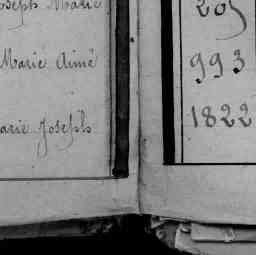 oseph Marie
Marie Aimé
arie Joseph
205
993
1822